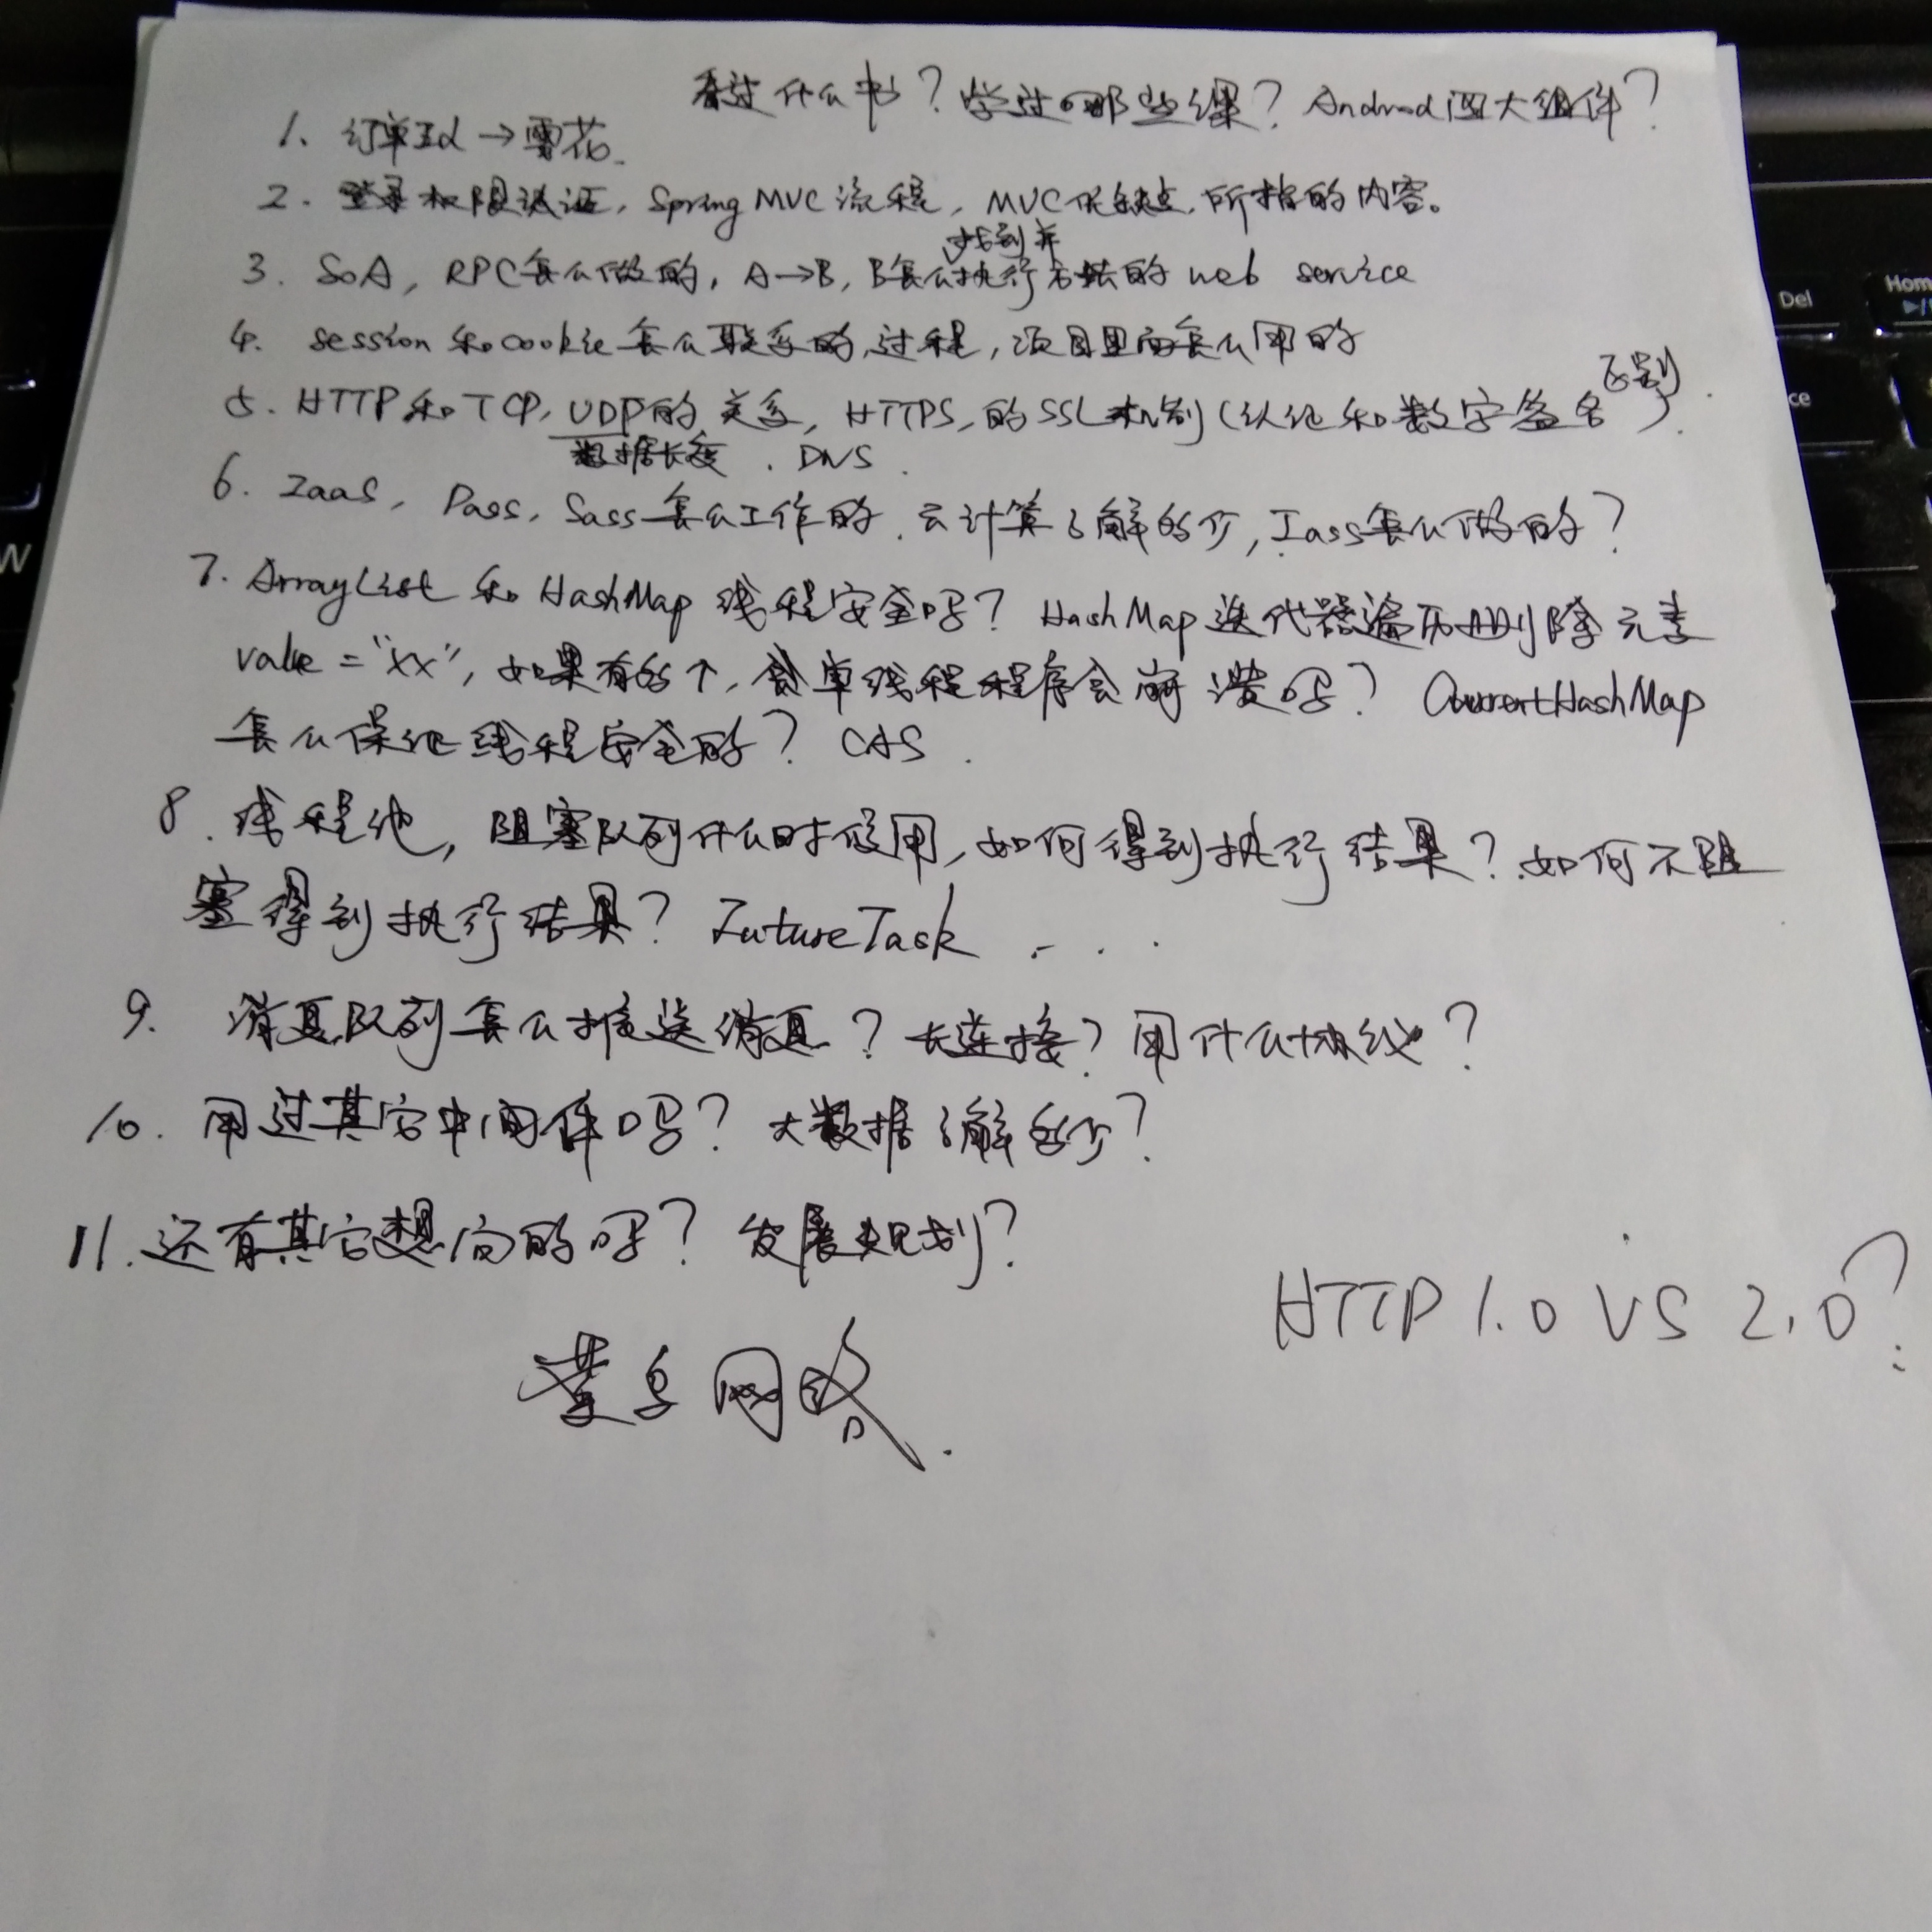 看过什么书？学过哪些课？Android四大组件？
1. 订单Id → 雪花.
2. 登录权限认证, Spring MVC 流程, MVC优缺点, 所指的内容。
找到并
3. SOA, RPC怎么做的, A→B, B怎么执行方法的 web service
4. session 和 cookie 怎么联系的,过程, 项目里面怎么用的
区别
5. HTTP和TCP, UDP的关系, HTTPS,的SSL机制(认证和数字签名).
数据长度. DNS.
6. IaaS, Pass, Sass怎么工作的, 云计算了解的少, Iass怎么做的?
7. ArrayList 和 HashMap 线程安全吗? HashMap 迭代器遍历删除元素
value = "xx", 如果有的个, 单线程程序会崩溃吗? CurrentHashMap
怎么保证线程安全的? CAS.
8. 线程池, 阻塞队列什么时候用, 如何得到执行结果? 如何不阻
塞得到执行结果? FutureTask ...
9. 消息队列怎么推送消息? 长连接? 用什么协议?
10. 用过其它中间件吗? 大数据了解多少?
11. 还有其它想问的吗? 发展规划?
HTTP 1.0 VS 2.0?
网络.